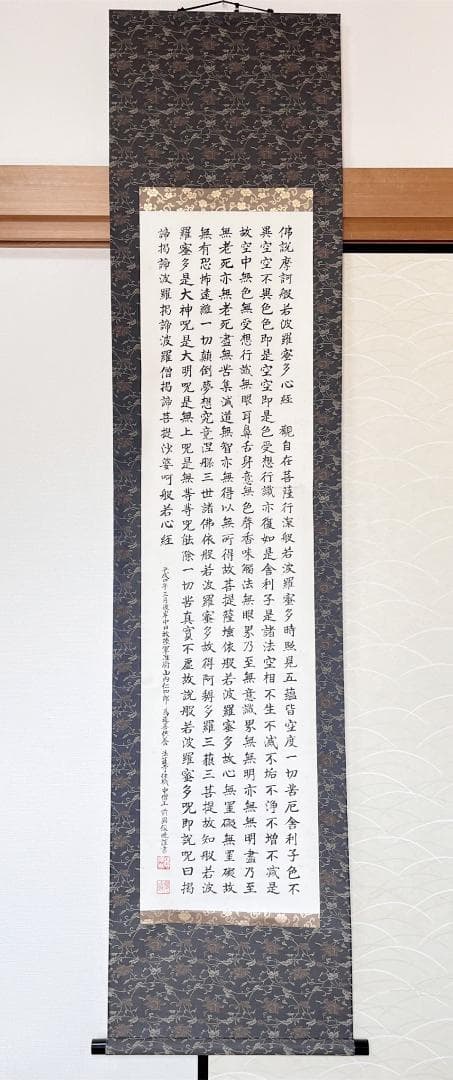 佛説摩訶般若波羅蜜多心経　觀自在菩薩行深般若波羅蜜多時照見五蘊皆空度一切苦厄舎利子色不
異空空不異色色即是空空即是色受想行識亦復如是舎利子是諸法空相不生不滅不垢不浄不増不減是
故空中無色無受想行識無眼耳鼻舌身意無色聲香味觸法無眼界乃至無意識界無無明亦無無明盡乃至
無老死亦無老死盡無苦集滅道無智亦無得以無所得故菩提薩埵依般若波羅蜜多故心無罣礙無罣礙故
無有恐怖遠離一切顛倒夢想究竟涅槃三世諸佛依般若波羅蜜多故得阿耨多羅三藐三菩提故知般若波
羅蜜多是大神呪是大明呪是無上呪是無等等呪能除一切苦真實不虚故説般若波羅蜜多呪即説呪曰揭
諦揭諦波羅揭諦波羅僧揭諦菩提沙婆呵般若心経
平成四年三月彼岸中日故陸軍准尉山内仁四郎 為追善供養 住職 中僧正 書